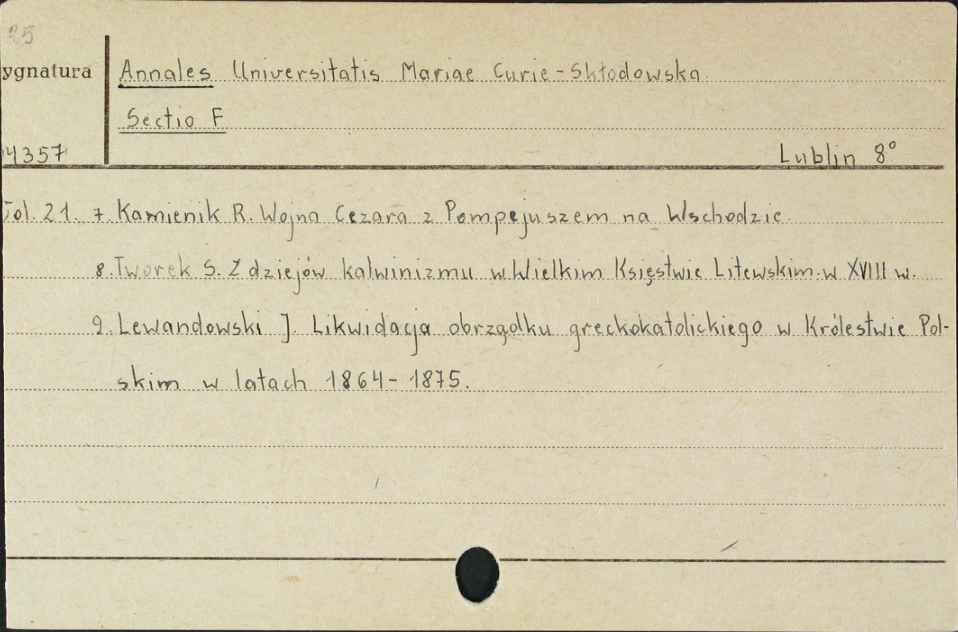 25
ygnatura
Annales Universitatis Mariae Curie-Skłodowska
Sectio F
4357
Lublin 8°
Vol. 21. 7. Kamienik R. Wojna Cezara z Pompejuszem na Wschodzie
8. Tworek S. Z dziejów kalwinizmu w Wielkim Księstwie Litewskim w XVIII w.
9. Lewandowski J. Likwidacja obrządku greckokatolickiego w Królestwie Pol-
skim w latach 1864-1875.